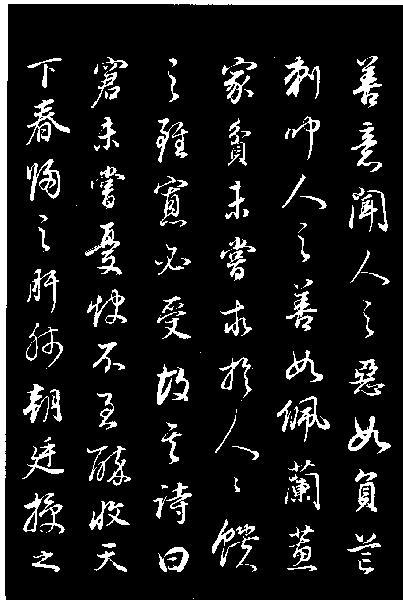 善意聞人之惡如負芒
刺聞人之善如佩蘭蕙
家貧未嘗求於人人饋
之雖寡必受故其詩曰
窘未嘗憂飲不至醉收天
下春歸之肝肺朝廷授之